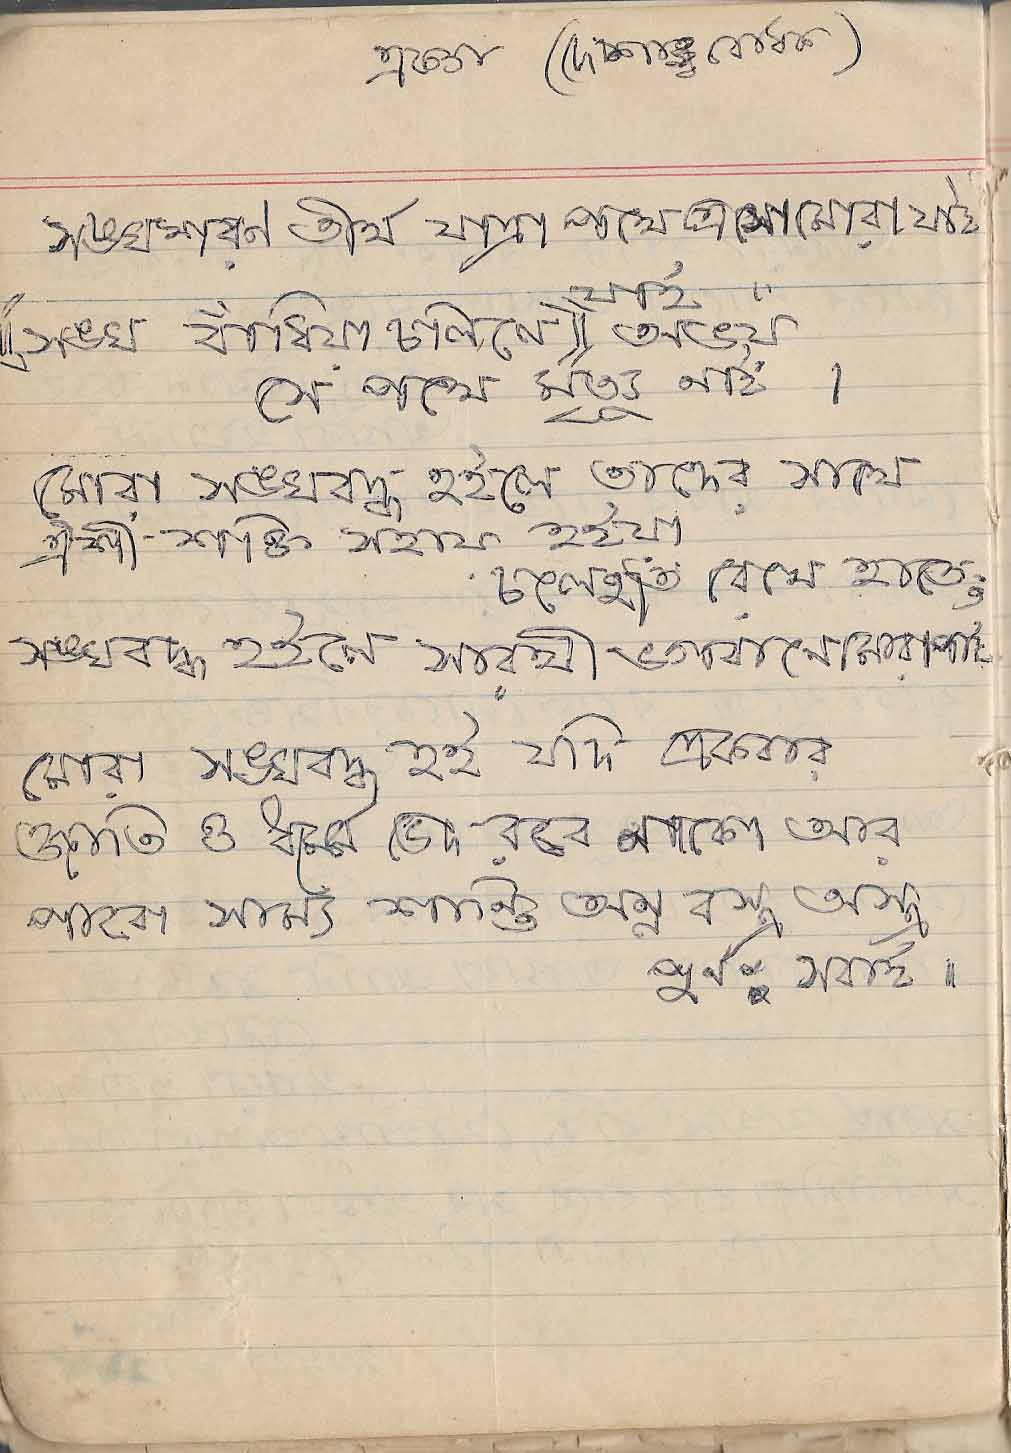 একতা (দেশাত্মবোধক)
সঙঘশরণ তীর্থ যাত্রা পথে এসো মোরা যাই
সঙঘ বাঁধিয়া চলিলে অভয়
যাই "
সে পথে মৃত্যু নাই ।
মোরা সঙঘবদ্ধ হইলে তাদের সাথে
ঐশী শক্তি সহায় হইয়া
চলে হাত রেখে হাতে
সঙঘবদ্ধ হইলে সারথী ভগবানে মোরা পাই
মোরা সঙঘবদ্ধ হই যদি একবার
জাতি ও ধর্মে ভেদ রবে নাকো আর
পাবো সাম্য শান্তি অন্ন বস্ত্র অস্ত্র
পুনঃ সবাই ॥